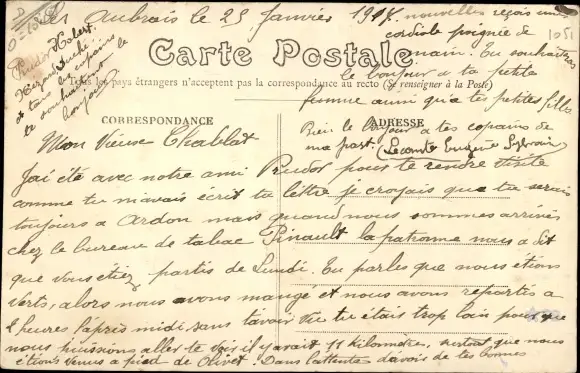 Les Aubrais le 25 Janvier 1917.
Carte Postale
Tous les pays étrangers n'acceptent pas la correspondance au recto (Se renseigner à la Poste)
CORRESPONDANCE
ADRESSE
Mon Vieux Chablat
J'ai été avec notre ami Prudor pour te rendre visite
comme tu m'avais écrit tu lettre je croyais que tu serais
toujours a Ardon mais quand nous sommes arrivés
chez le bureau de tabac Pinault la patronne nous a dit
que vous étiez partis de Lundi. Tu parles que nous étions
verts, alors nous avons mangé et nous avons repartis a
2 heures l'après midi, sans t'avoir vu tu étais trop loin pour que
nous puissions aller te voir il y avait 11 kilomètre, surtout que nous
étions venus a pied de Olivet. Dans l'attente d'avois de tes bonnes
nouvelles reçois une
cordiale poignée de
main. Tu souhaiteras
le bonjour a ta petite
femme aussi qu'a tes petites filles
Bien le bonjour a tes copains de
ma part. Lecomte Eugène Sylvain
Prudor Robert.
et tous les copains
te souhaitent le
bonjour
1051